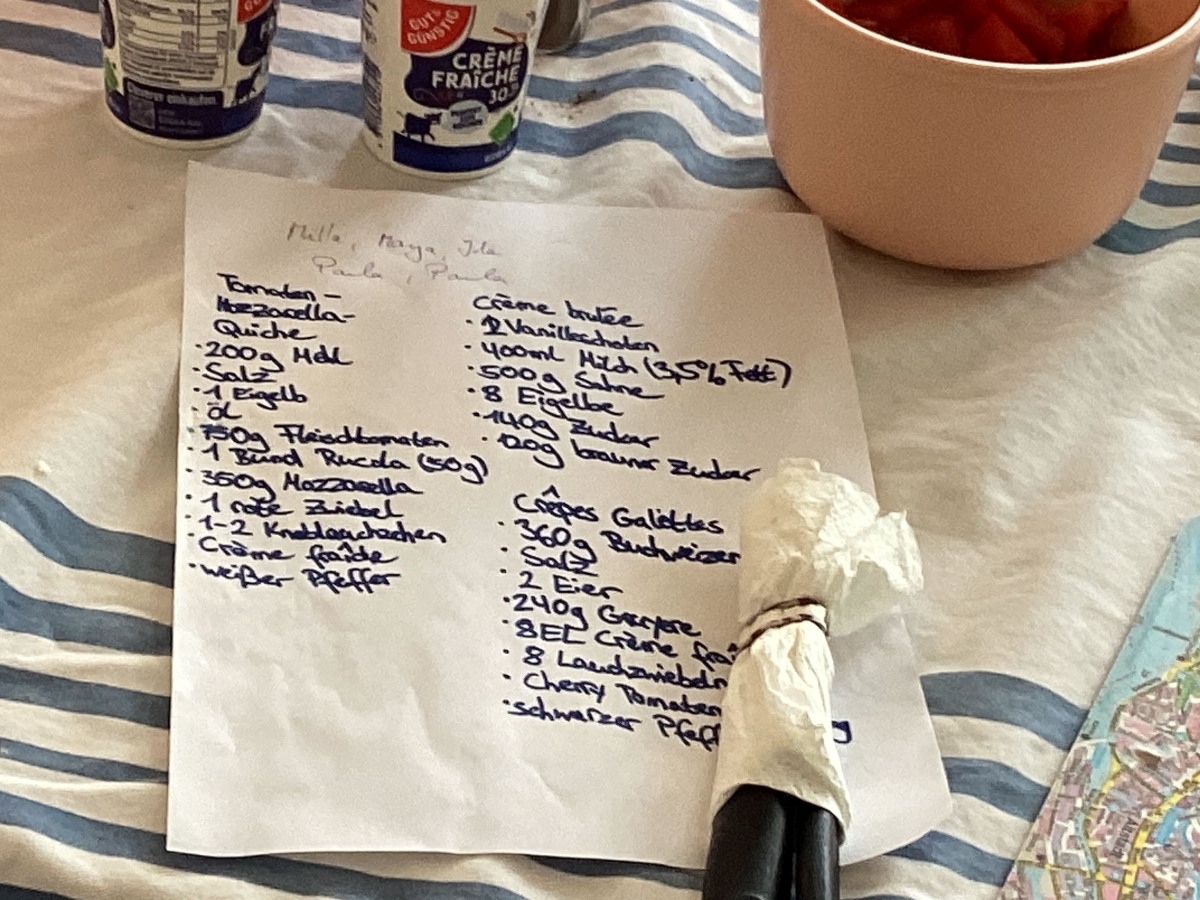 GUT & GÜNSTIG
CRÈME
FRAÎCHE
30%
Cleverer einkaufen
Mella, Maya, Jule
Paula, Paula
Tomaten-
Mozzarella-
Quiche
·200g Mehl
·Salz
·1 Eigelb
·Öl
·750g Fleischtomaten
·1 Bund Rucola (50g)
·350g Mozzarella
·1 rote Zwiebel
·1-2 Knoblauchzehen
·Crème fraîche
·weißer Pfeffer
Crème brulée
·2 Vanilleschoten
·400ml Milch (3,5% Fett)
·500g Sahne
·8 Eigelbe
·140g Zucker
·120g brauner Zucker
Crêpes Galettes
·360g Buchweizen
·Salz
·2 Eier
·240g Gruyère
·8EL Crème fraî
·8 Lauchzwiebeln
·Cherry Tomaten
·schwarzer Pfeff